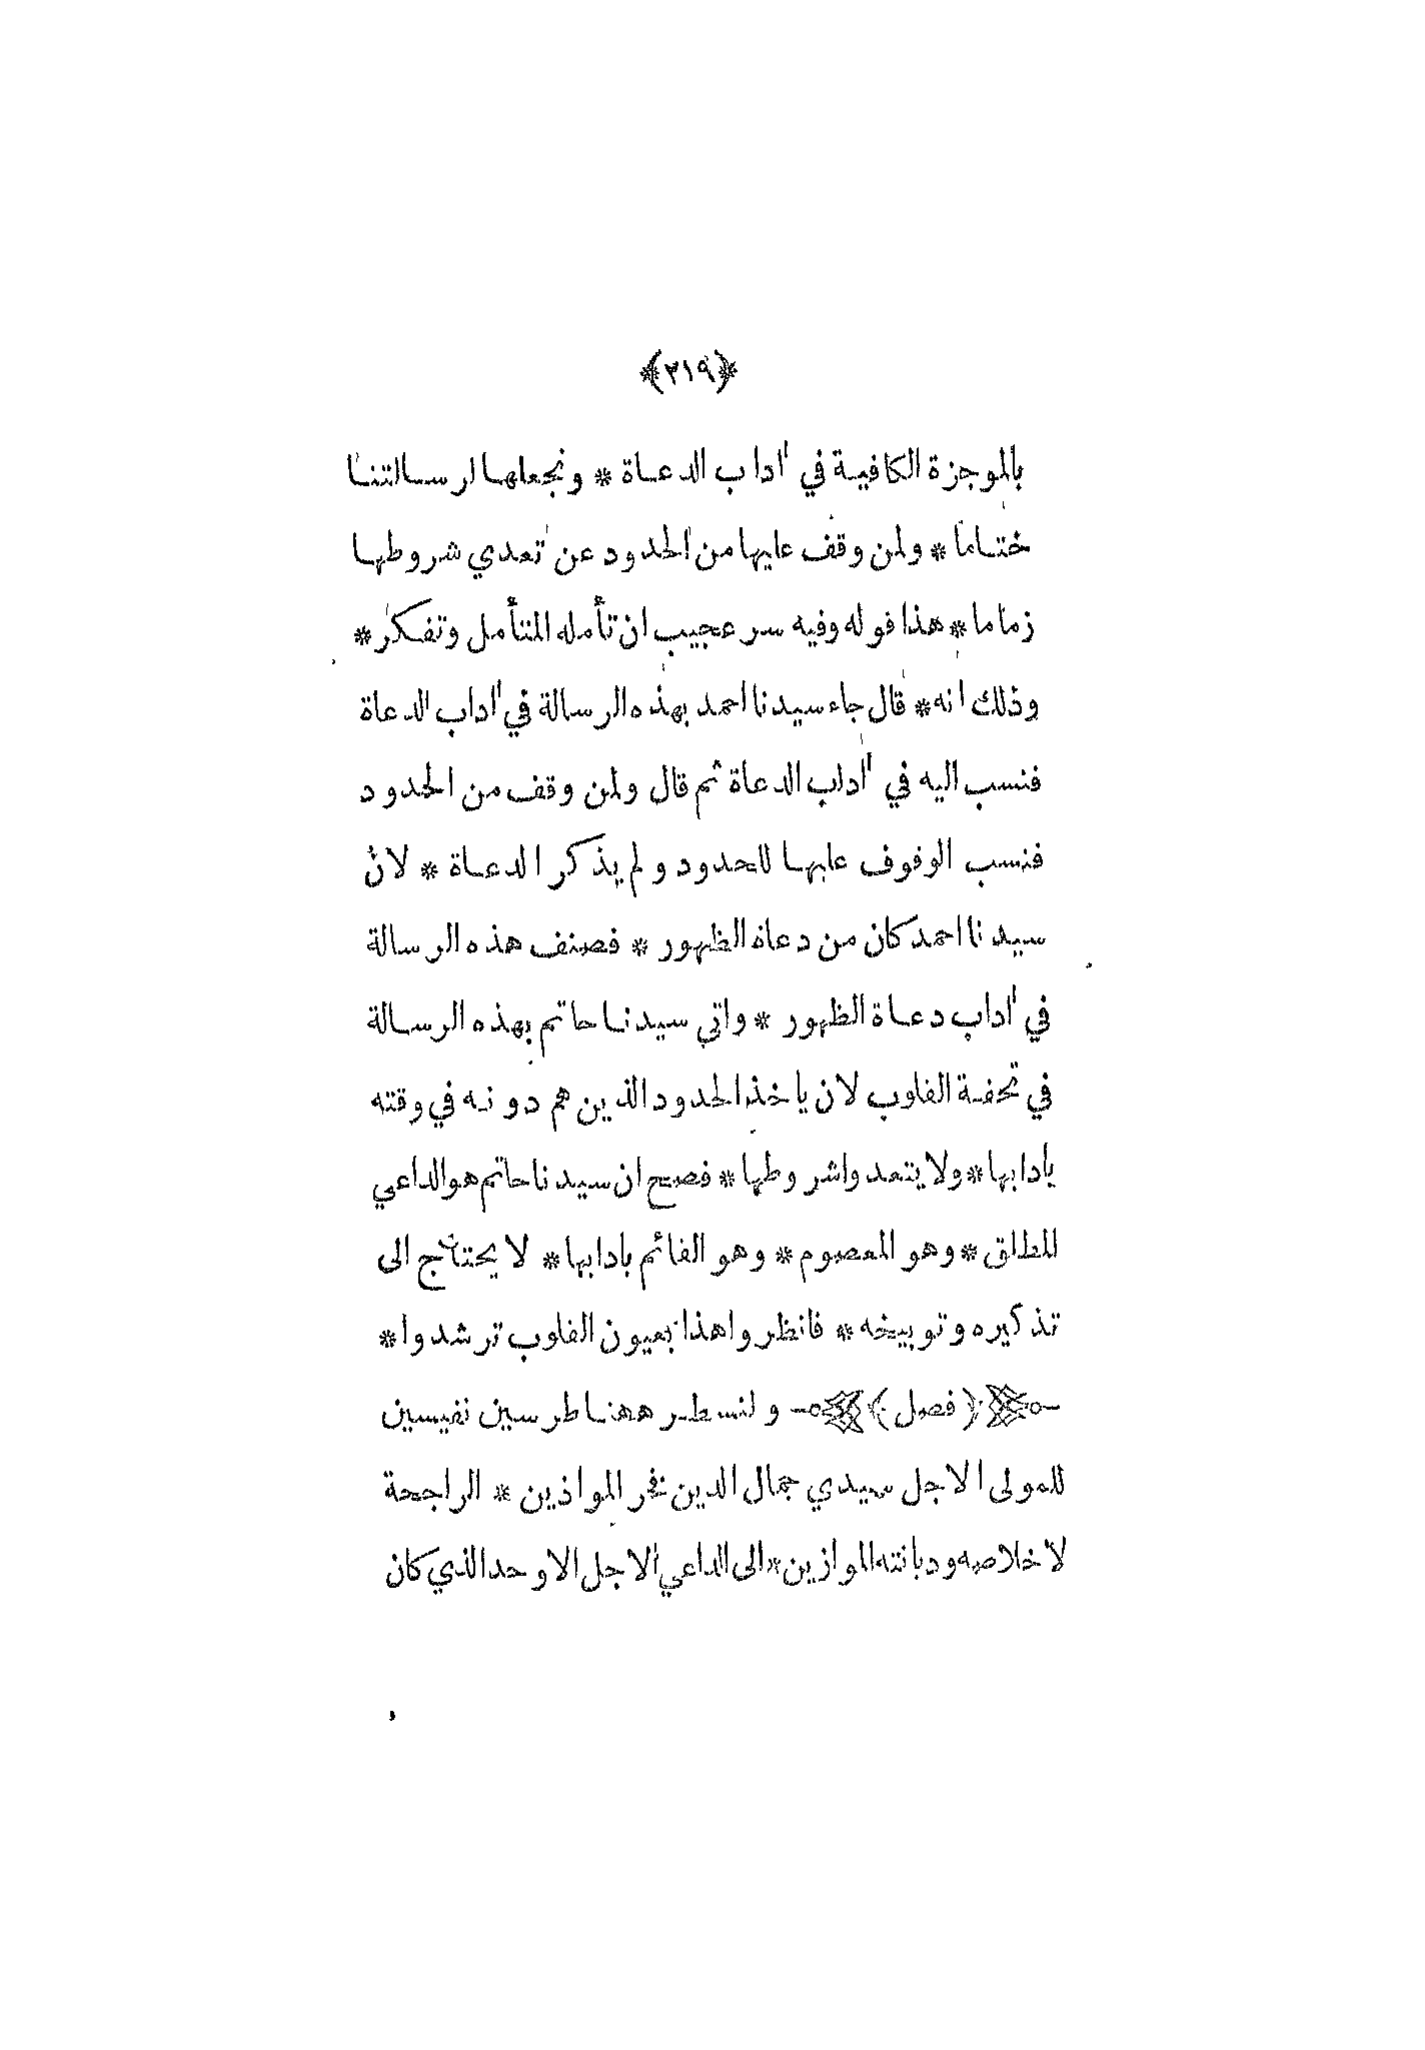 ﴿٢١٩﴾
بالموجزة الكافية في اداب الدعاة * ونجعلها لرسالتنا
ختاما * ولمن وقف عليها من الحدود عن تعدي شروطها
زماما * هذا قوله وفيه سر عجيب ان تأمله المتأمل وتفكر *
وذلك انه * قال جاء سيدنا احمد بهذه الرسالة في اداب الدعاة
فنسب اليه في اداب الدعاة ثم قال ولمن وقف من الحدود
فنسب الوقوف عليها للحدود ولم يذكر الدعاة * لان
سيدنا احمد كان من دعاة الظهور * فصنف هذه الرسالة
في اداب دعاة الظهور * واتى سيدنا حاتم بهذه الرسالة
في تحفة القلوب لان ياخذ الحدود الذين هم دونه في وقته
بادابها * ولا يتعدوا شروطها * فصح ان سيدنا حاتم هو الداعي
المطلق * وهو المعصوم * وهو القائم بادابها * لا يحتاج الى
تذكيره وتوبيخه * فانظروا هذا بعيون القلوب ترشدوا *
(فصل) ولنسطر ههنا طرسين نفيسين
للمولى الاجل سيدي جمال الدين فخر المواذين * الراجحة
لاخلاصه وديانته الموازين * الى الداعي الاجل الاوحد الذي كان